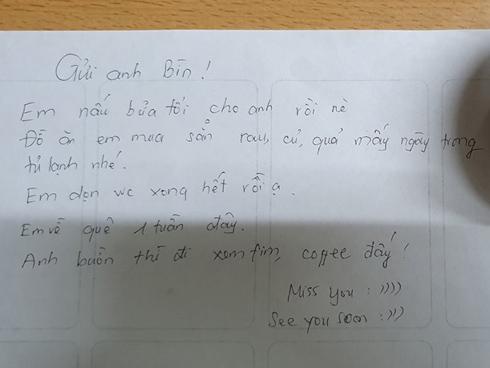 Gửi anh Bin!
Em nấu bữa tối cho anh rồi nè
Đồ ăn em mua sẵn rau, củ, quả mấy ngày trong
tủ lạnh nhé.
Em dọn wc xong hết rồi ạ.
Em về quê 1 tuần đây.
Anh buồn thì đi xem fim, coffee đấy!
Miss you :))))
See you soon :)))